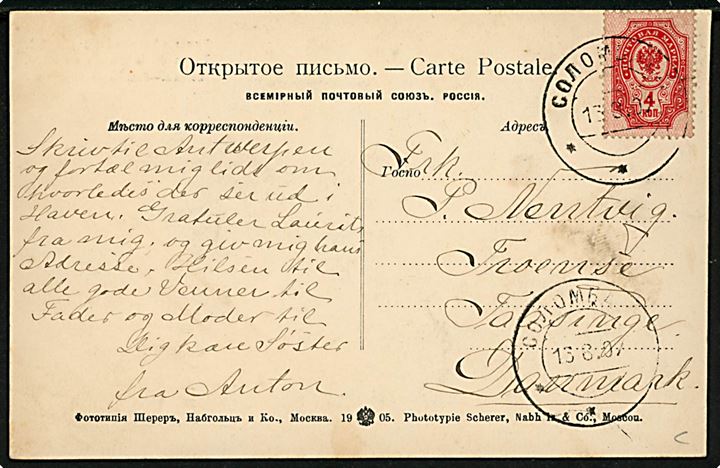 Открытое письмо. — Carte Postale.
ВСЕМІРНЫЙ ПОЧТОВЫЙ СОЮЗЪ. РОССІЯ.
Мѣсто для корреспонденціи.
Адресъ
Skriv til Antwerpen
og fortæl mig lidt om
hvorledes der ser ud i
Haven. Gratuler Laurits
fra mig, og giv mig hans
Adresse. Hilsen til
alle gode Venner til
Fader og Moder til
Dig kære Søster
fra Anton.
ПОЧТОВАЯ МАРКА
4
КОП
СОЛОМБ
Frk.
Госпо
P. Nentvig.
Troense
Taasinge
Danmark.
СОЛОМБ
Фототипія Шереръ, Набгольцъ и Ко., Москва. 1905. Phototypie Scherer, Nabholz & Co., Moscou.
c